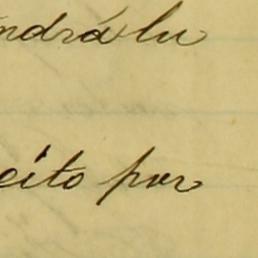 ndrá lu
eito por